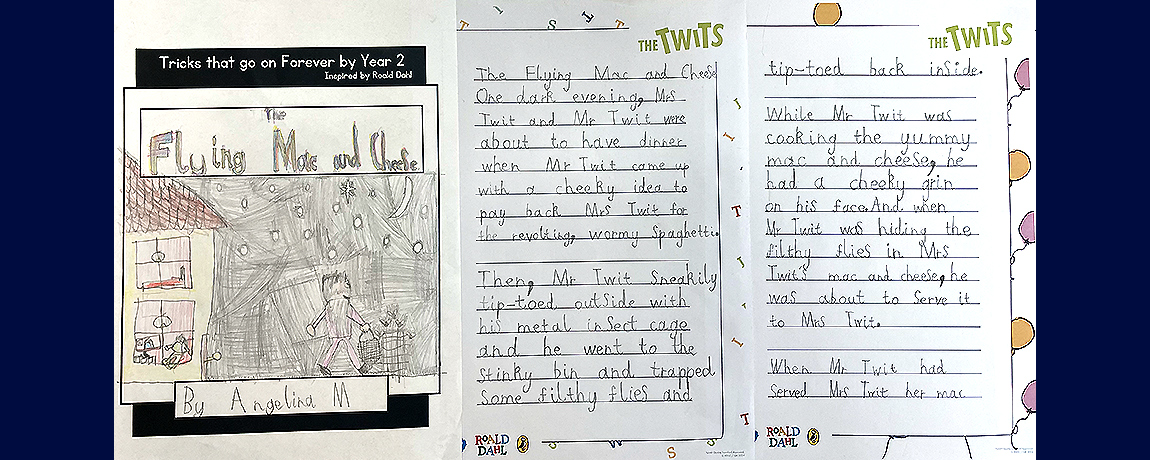 Tricks that go on Forever by Year 2
Inspired by Roald Dahl
The
Flying Mac and Cheese
By Angelina M
THE TWITS
The Flying Mac and Cheese
One dark evening, Mrs
Twit and Mr Twit were
about to have dinner
when Mr Twit came up
with a cheeky idea to
pay back Mrs Twit for
the revolting, wormy spaghetti.
Then, Mr Twit sneakily
tip-toed outside with
his metal insect cage
and he went to the
stinky bin and trapped
some filthy flies and
ROALD
DAHL
THE TWITS
tip-toed back inside.
While Mr Twit was
cooking the yummy
mac and cheese, he
had a cheeky grin
on his face. And when
Mr Twit was hiding the
filthy flies in Mrs
Twit's mac and cheese, he
was about to serve it
to Mrs Twit.
When Mr Twit had
served Mrs Twit her mac
ROALD
DAHL